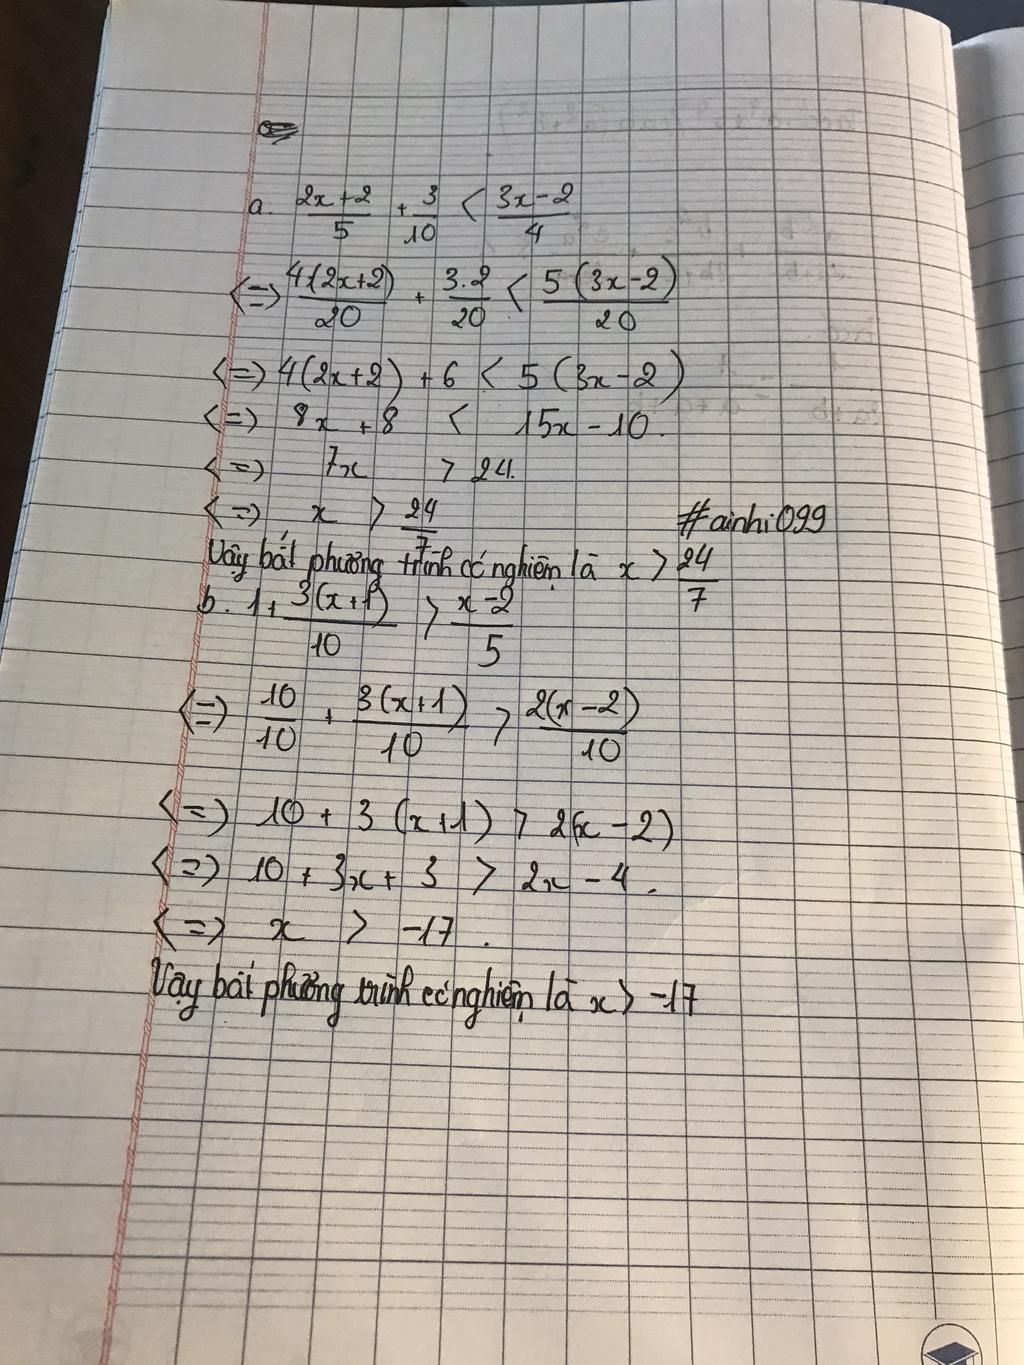 a. (2x+2)/5 + 3/10 < (3x-2)/4
<=> 4(2x+2)/20 + 3.2/20 < 5(3x-2)/20
<=> 4(2x+2) + 6 < 5(3x-2)
<=> 8x + 8 < 15x - 10.
<=> 7x > 24.
<=> x > 24/7
#ainhi099
Vậy bất phương trình có nghiệm là x > 24/7
b. 1 + 3(x+1)/10 > (x-2)/5
<=> 10/10 + 3(x+1)/10 > 2(x-2)/10
<=> 10 + 3(x+1) > 2(x-2)
<=> 10 + 3x + 3 > 2x - 4.
<=> x > -17.
Vậy bất phương trình có nghiệm là x > -17